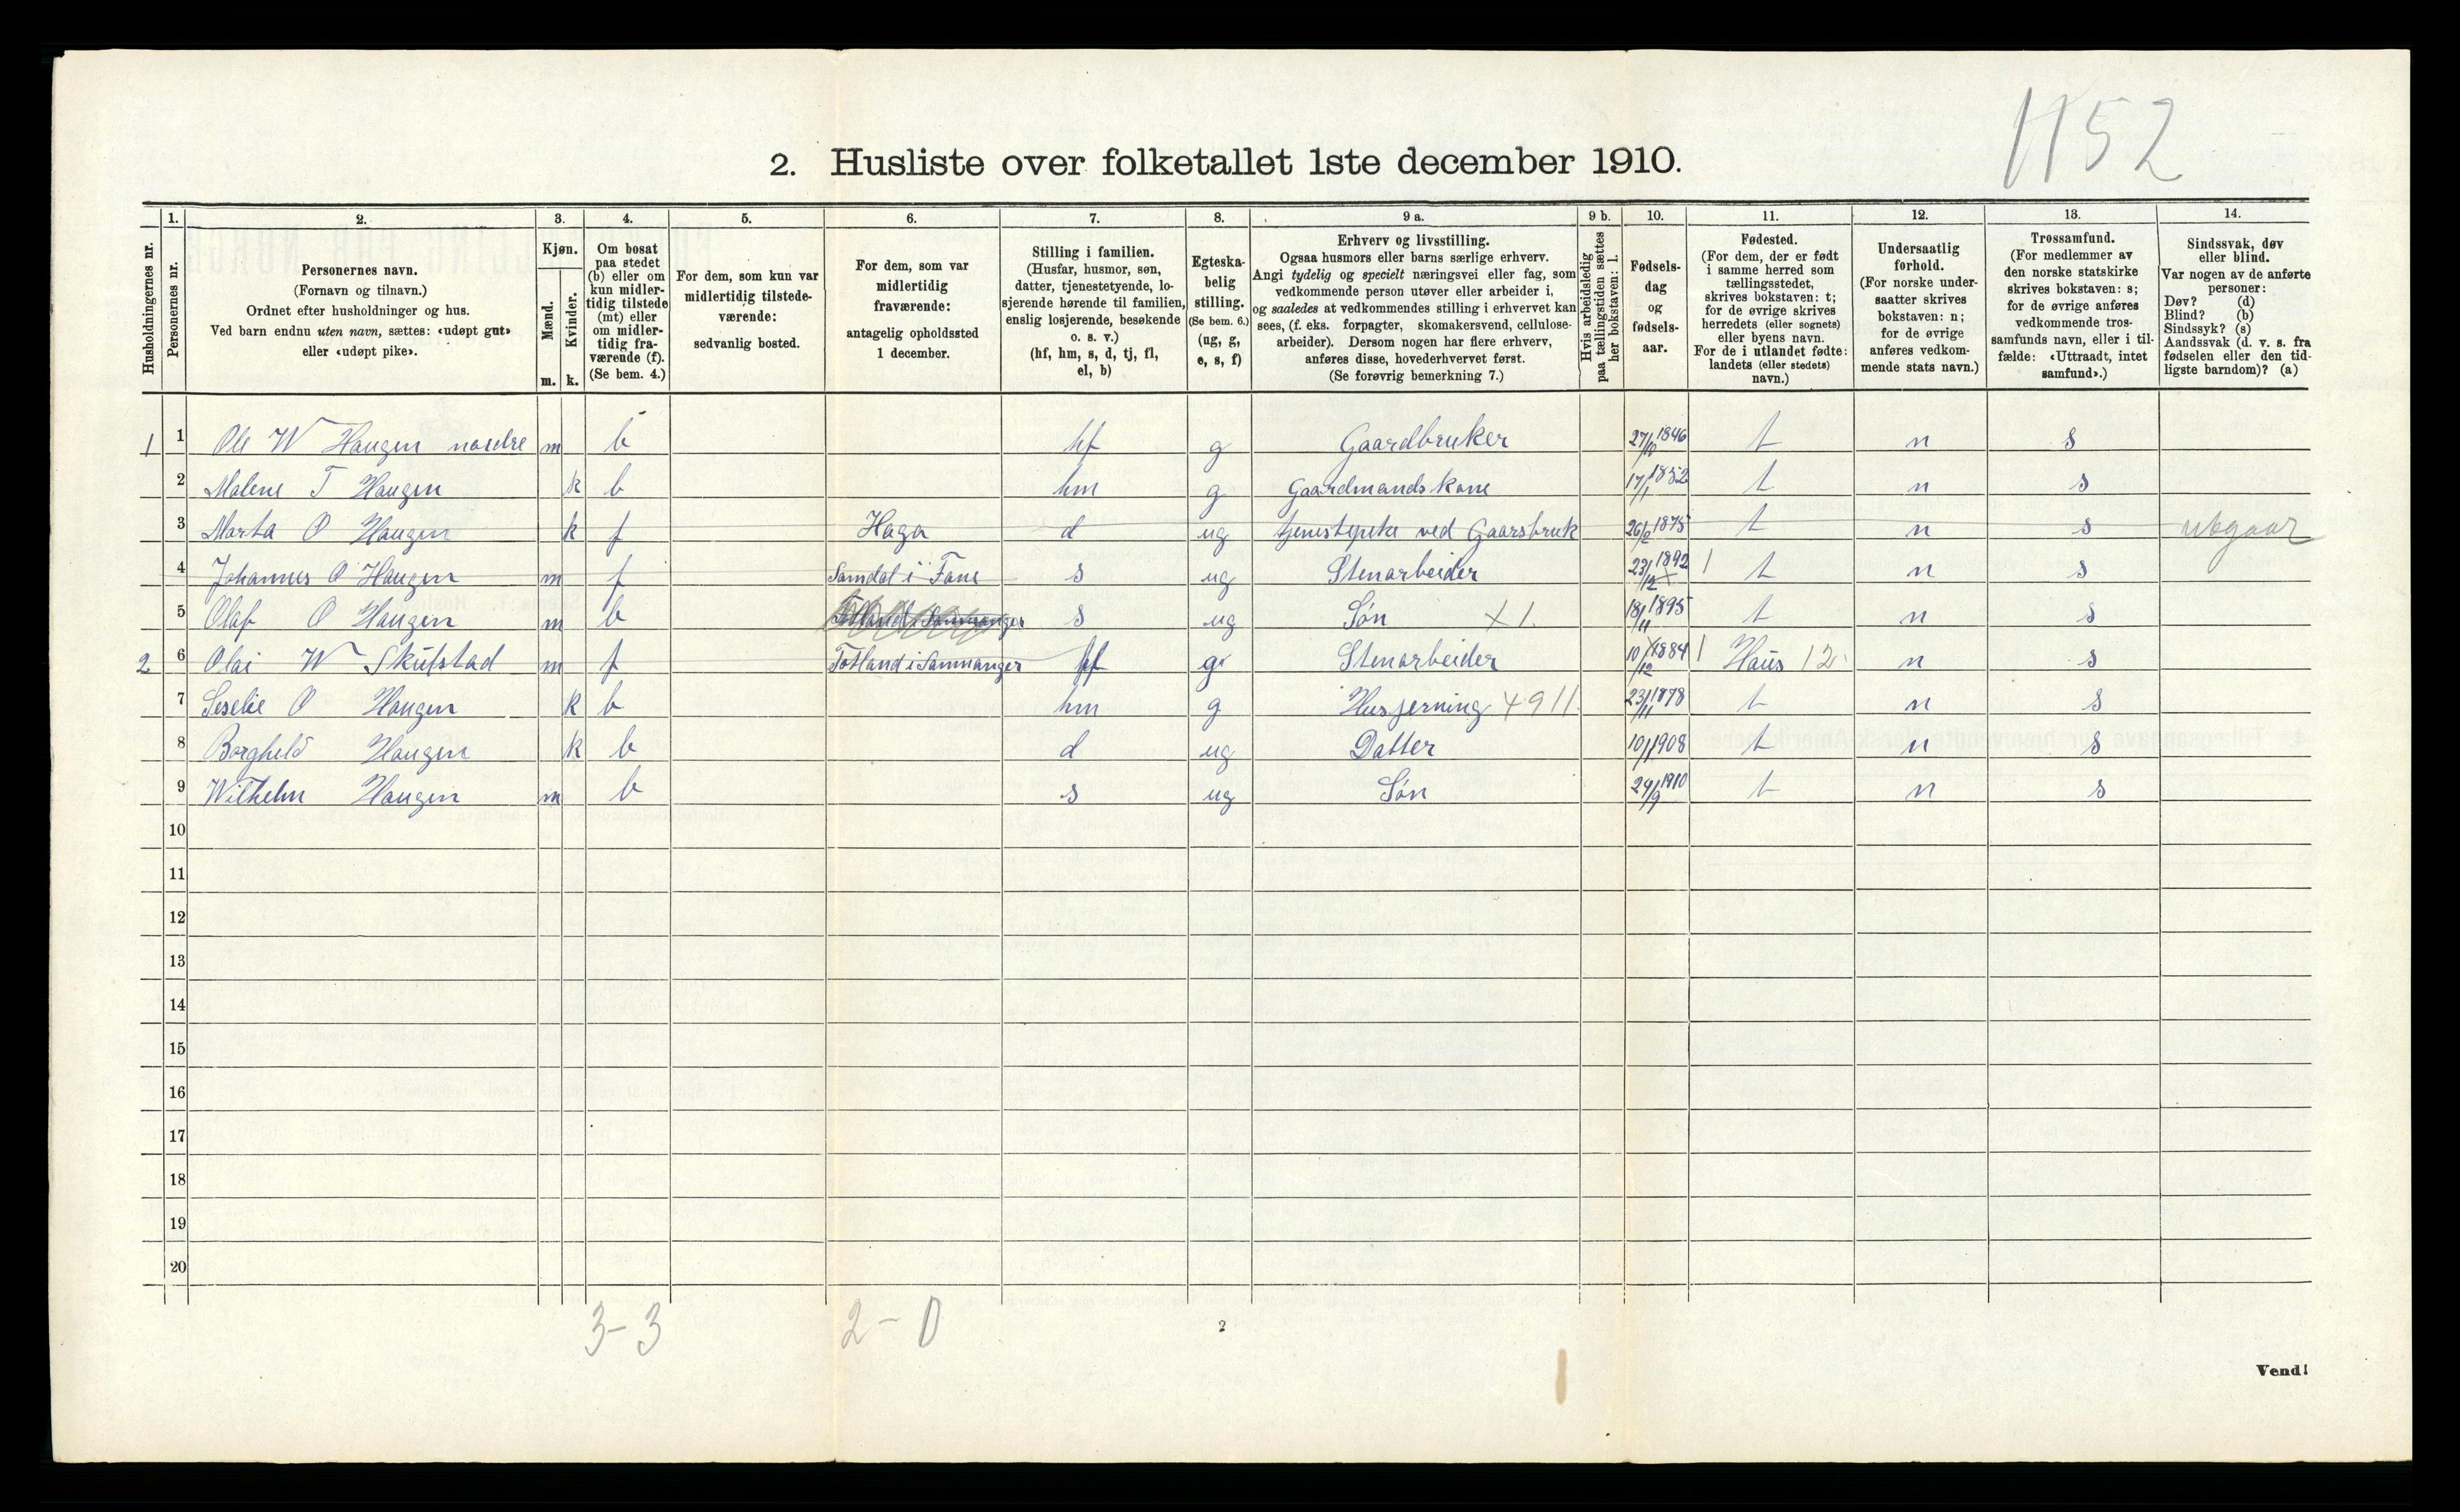 1152
2. Husliste over folketallet 1ste december 1910.
Husholdningernes nr.
1. Personernes nr.
2. Personernes navn.
(Fornavn og tilnavn.)
Ordnet efter husholdninger og hus.
Ved barn endnu uten navn, sættes: «udøpt gut»
eller «udøpt pike».
3. Kjøn.
Mænd. Kvinder.
m. k.
4. Om bosat
paa stedet
(b) eller om
kun midler-
tidig tilstede
(mt) eller
om midler-
tidig fra-
værende (f).
(Se bem. 4.)
5. For dem, som kun var
midlertidig tilstede-
værende:
sedvanlig bosted.
6. For dem, som var
midlertidig
fraværende:
antagelig opholdssted
1 december.
7. Stilling i familien.
(Husfar, husmor, søn,
datter, tjenestetyende, lo-
sjerende hørende til familien,
enslig losjerende, besøkende
o. s. v.)
(hf, hm, s, d, tj, fl,
el, b)
8. Egteska-
belig
stilling.
(Se bem. 6.)
(ug, g,
e, s, f)
9 a. Erhverv og livsstilling.
Ogsaa husmors eller barns særlige erhverv.
Angi tydelig og specielt næringsvei eller fag, som
vedkommende person utøver eller arbeider i,
og saaledes at vedkommendes stilling i erhvervet kan
sees, (f. eks. forpagter, skomakersvend, cellulose-
arbeider). Dersom nogen har flere erhverv,
anføres disse, hovederhvervet først.
(Se forøvrig bemerkning 7.)
9 b. Hvis arbeidsledig
paa tællingstiden sættes
her bokstaven: l.
10. Fødsels-
dag
og
fødsels-
aar.
11. Fødested.
(For dem, der er født
i samme herred som
tællingsstedet,
skrives bokstaven: t;
for de øvrige skrives
herredets (eller sognets)
eller byens navn.
For de i utlandet fødte:
landets (eller stedets)
navn.)
12. Undersaatlig
forhold.
(For norske under-
saatter skrives
bokstaven: n;
for de øvrige
anføres vedkom-
mende stats navn.)
13. Trossamfund.
(For medlemmer av
den norske statskirke
skrives bokstaven: s;
for de øvrige anføres
vedkommende tros-
samfunds navn, eller i til-
fælde: «Uttraadt, intet
samfund».)
14. Sindssvak, døv
eller blind.
Var nogen av de anførte
personer:
Døv? (d)
Blind? (b)
Sindssyk? (s)
Aandssvak (d. v. s. fra
fødselen eller den tid-
ligste barndom)? (a)
1 1 Ole W Haugen nordre m b hf g Gaardbruker 27/10 1846 t n s
2 Malene T Haugen k b hm g Gaardmandskone 17/1 1852 t n s
3 Marta O Haugen k f Haga d ug tjenestepike ved Gaarsbruk 26/2 1875 t n s utgaar
4 Johannes O Haugen m f Samdal i Fane s ug Stenarbeider 23/12 1892 1 t n s
5 Olaf O Haugen m b Totland i Samnanger s ug Søn x 1 18/11 1895 t n s
2 6 Olai W Skulstad m f Totland i Samnanger hf g Stenarbeider 10/12 1884 1 Haus 12 n s
7 Seselie O Haugen k b hm g Husgerning x 911 23/11 1878 t n s
8 Borghild Haugen k b d ug Datter 10/1 1908 t n s
9 Wilhelm Haugen m b s ug Søn 24/9 1910 t n s
10
11
12
13
14
15
16
17
18
19
20
3-3 2-0 2
Vend!